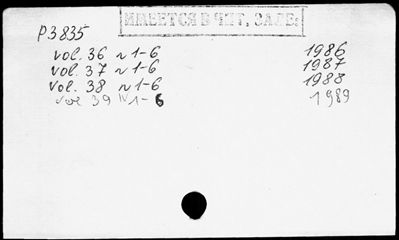 ИМЕЕТСЯ В ЧИТ. ЗАЛЕ.
P3835
vol. 36 N 1-6 1986
vol. 37 N 1-6 1987
vol. 38 N 1-6 1988
vol 39 N 1-6 1989